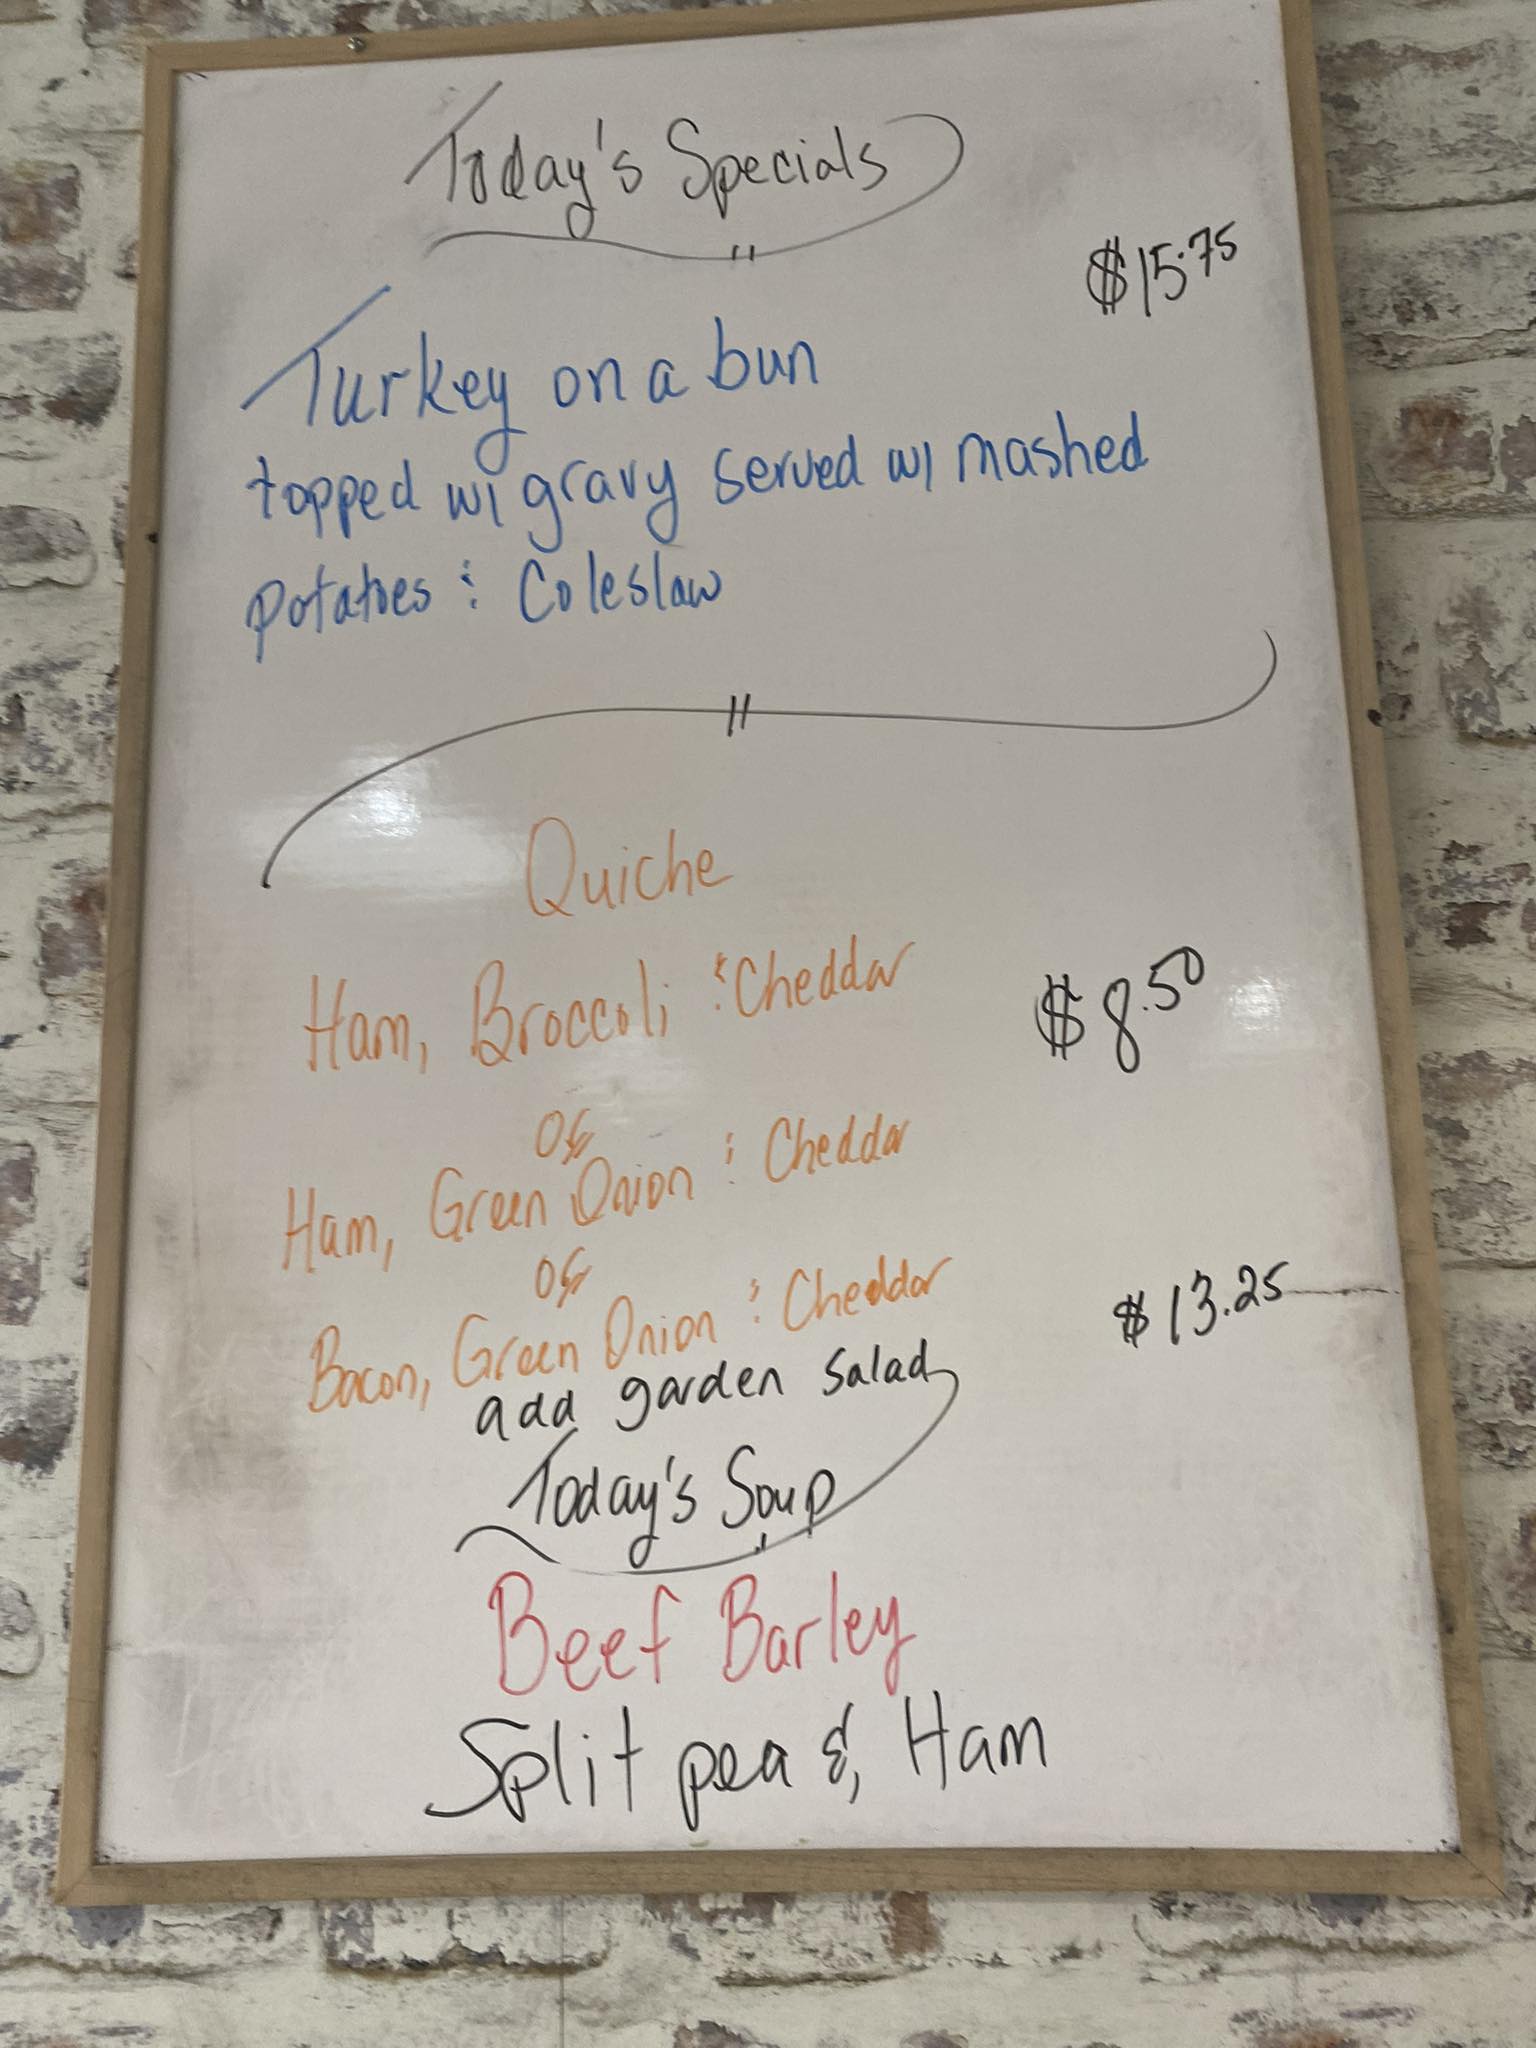 Today's Specials
$15.75
Turkey on a bun
topped w/ gravy served w/ mashed
potatoes & Coleslaw
Quiche
Ham, Broccoli & Cheddar
$8.50
or
Ham, Green Onion & Cheddar
or
Bacon, Green Onion & Cheddar
$13.25
add garden salad
Today's Soup
Beef Barley
Split pea & Ham